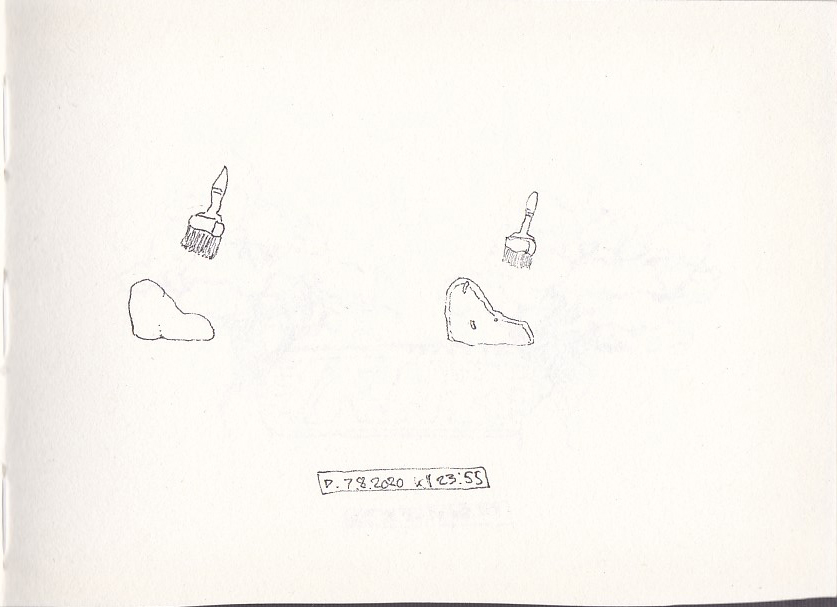 D. 7.8.2020 kl 23:55